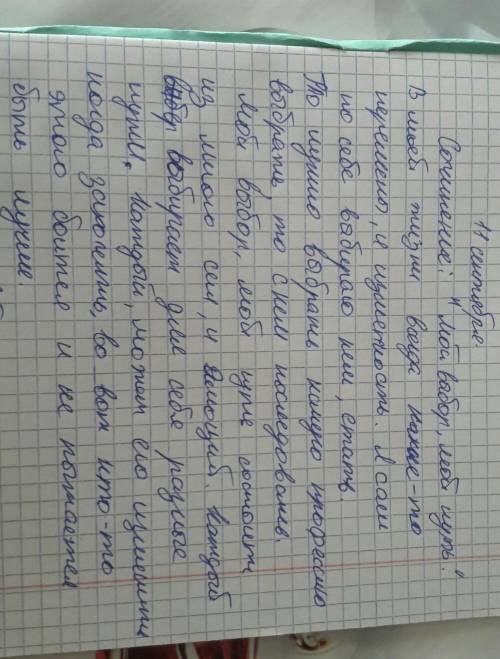 11 сентября
Сочинение: "Мой выбор, мой путь."
В моей жизни всегда какие-то
перемены, и изменность. Я сам
по себе выбираю кем, стать.
То нужно выбрать какую профессию
выбрать, то с кем последовать.
Мой выбор, мой путь состоит
из много сем, и эмоций. Каждый
выбирает для себя разные
пути. Каждый, может его изменить
когда захочеть, во вот кто-то
этого боится и не пытается
быть лучше.